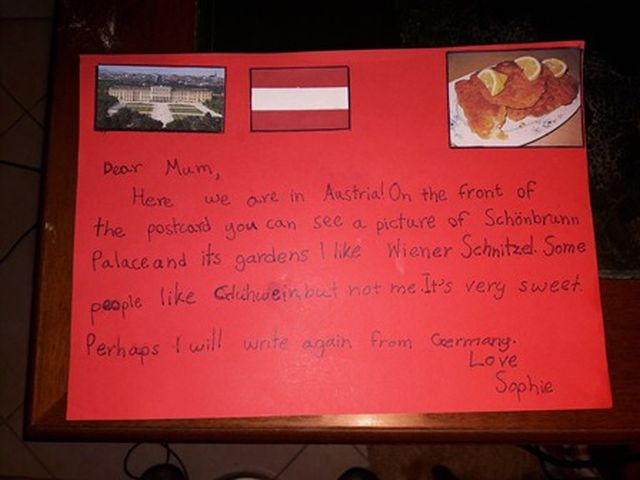 Dear Mum,
Here we are in Austria! On the front of
the postcard you can see a picture of Schönbrunn
Palace and its gardens I like Wiener Schnitzel. Some
people like but not me. It's very sweet.
Perhaps I will write again from Germany.
Love
Sophie